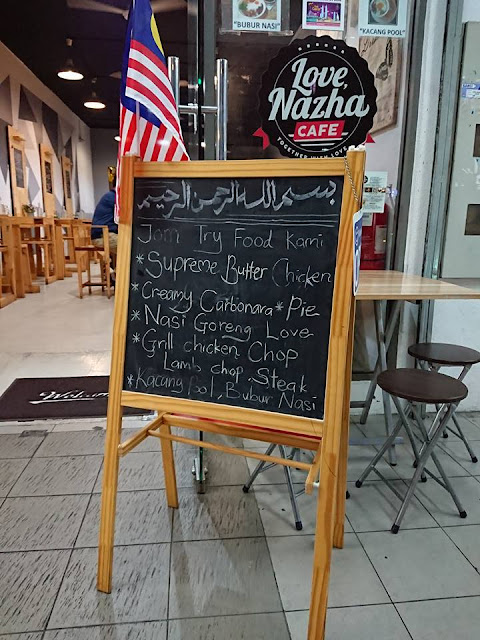 "BUBUR NASI"
"KACANG POOL"
Love,
Nazha
CAFE
TOGETHER WITH LOVE
بسم الله الرحمن الرحيم
Jom Try Food Kami
* Supreme Butter Chicken
* Creamy Carbonara * Pie
* Nasi Goreng Love
* Grill chicken Chop
Lamb chop, Steak
* Kacang pol, Bubur Nasi
Welcome